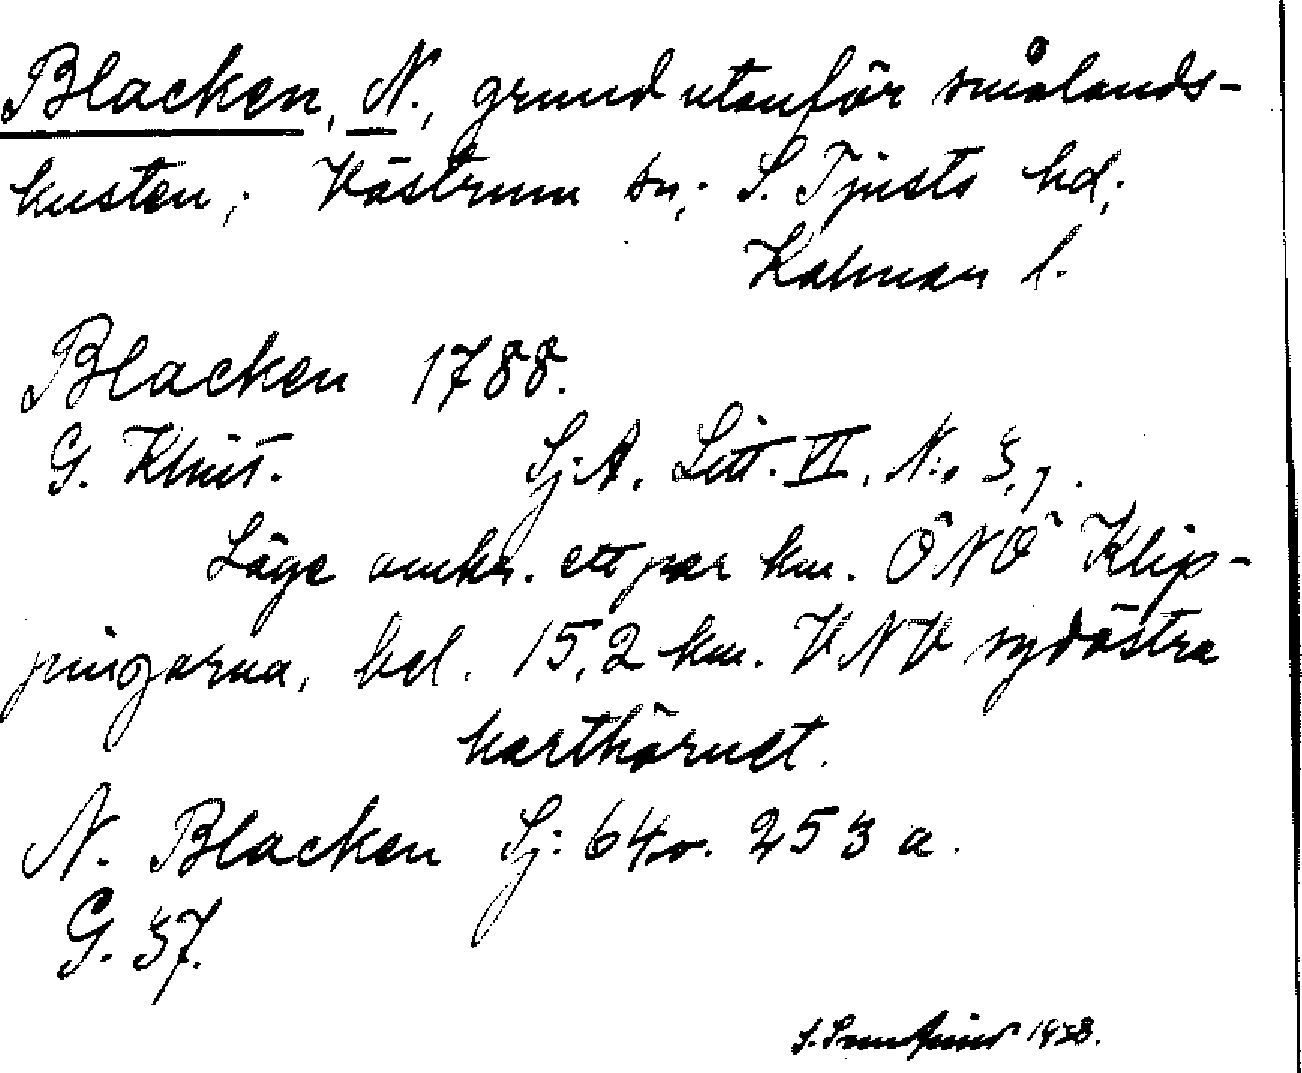 Blacken, N., grund utanför smålands-
kusten; Västrum sn; S. Tjusts hd;
Kalmar l.
Blacken 1788.
G. Klint. Sj:A. Litt. VI, N:o 3,7.
Läge omkr. ett par km. ÖNÖ Klip-
pingarna, bel. 15,2 km. VNV sydöstra
karthörnet.
N. Blacken Sj: 64 o. 253 a.
G. 37.
S. 1938.